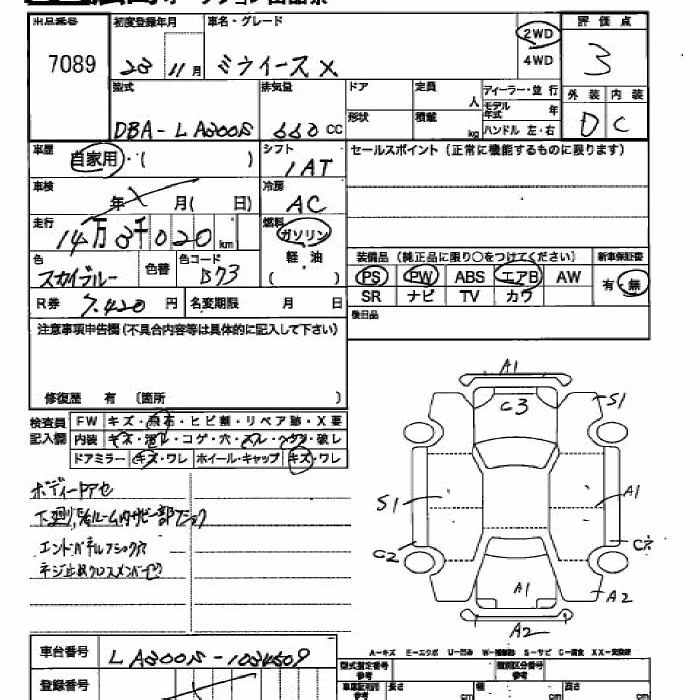 出品番号 初度登録年月 車名・グレード 2WD 評価点
7089 23 11月 ミライース X 4WD 3
型式 排気量 ドア 定員 人 ディーラー・並行 外装 内装
DBA-LA300S 660 CC 形状 積載 kg モデル年式 年 D C
ハンドル 左・右
車歴 自家用・( ) シフト 1AT セールスポイント(正常に機能するものに限ります)
車検 年 月( 日) 冷房 AC
走行 14万3千020km 燃料 ガソリン
軽油
( )
色 スカイブルー 色替 色コード B73 装備品(純正品に限り○をつけてください) 新車保証書
PS PW ABS エアB AW 有・無
SR ナビ TV カワ
R券 7,420円 名変期限 月 日 後日品
注意事項申告欄(不具合内容等は具体的に記入して下さい)
修復歴 有 (箇所 )
検査員記入欄 FW キズ・飛石・ヒビ割・リペア跡・X要
内装 キズ・汚レ・コゲ・穴・スレ・ヘタリ・破レ
ドアミラー キズ・ワレ ホイール・キャップ キズ・ワレ
A1
C3
S1
S1
A1
C2
A1
A2
A2
ボディーキアセ
下廻り
エンドパネル
車台番号 LA300S-1034509
登録番号
A-キズ E-エクボ U-凹み S-サビ C-腐食 XX-交換済
型式指定番号 参考 類別区分番号 参考
長さ cm 幅 cm 高さ cm